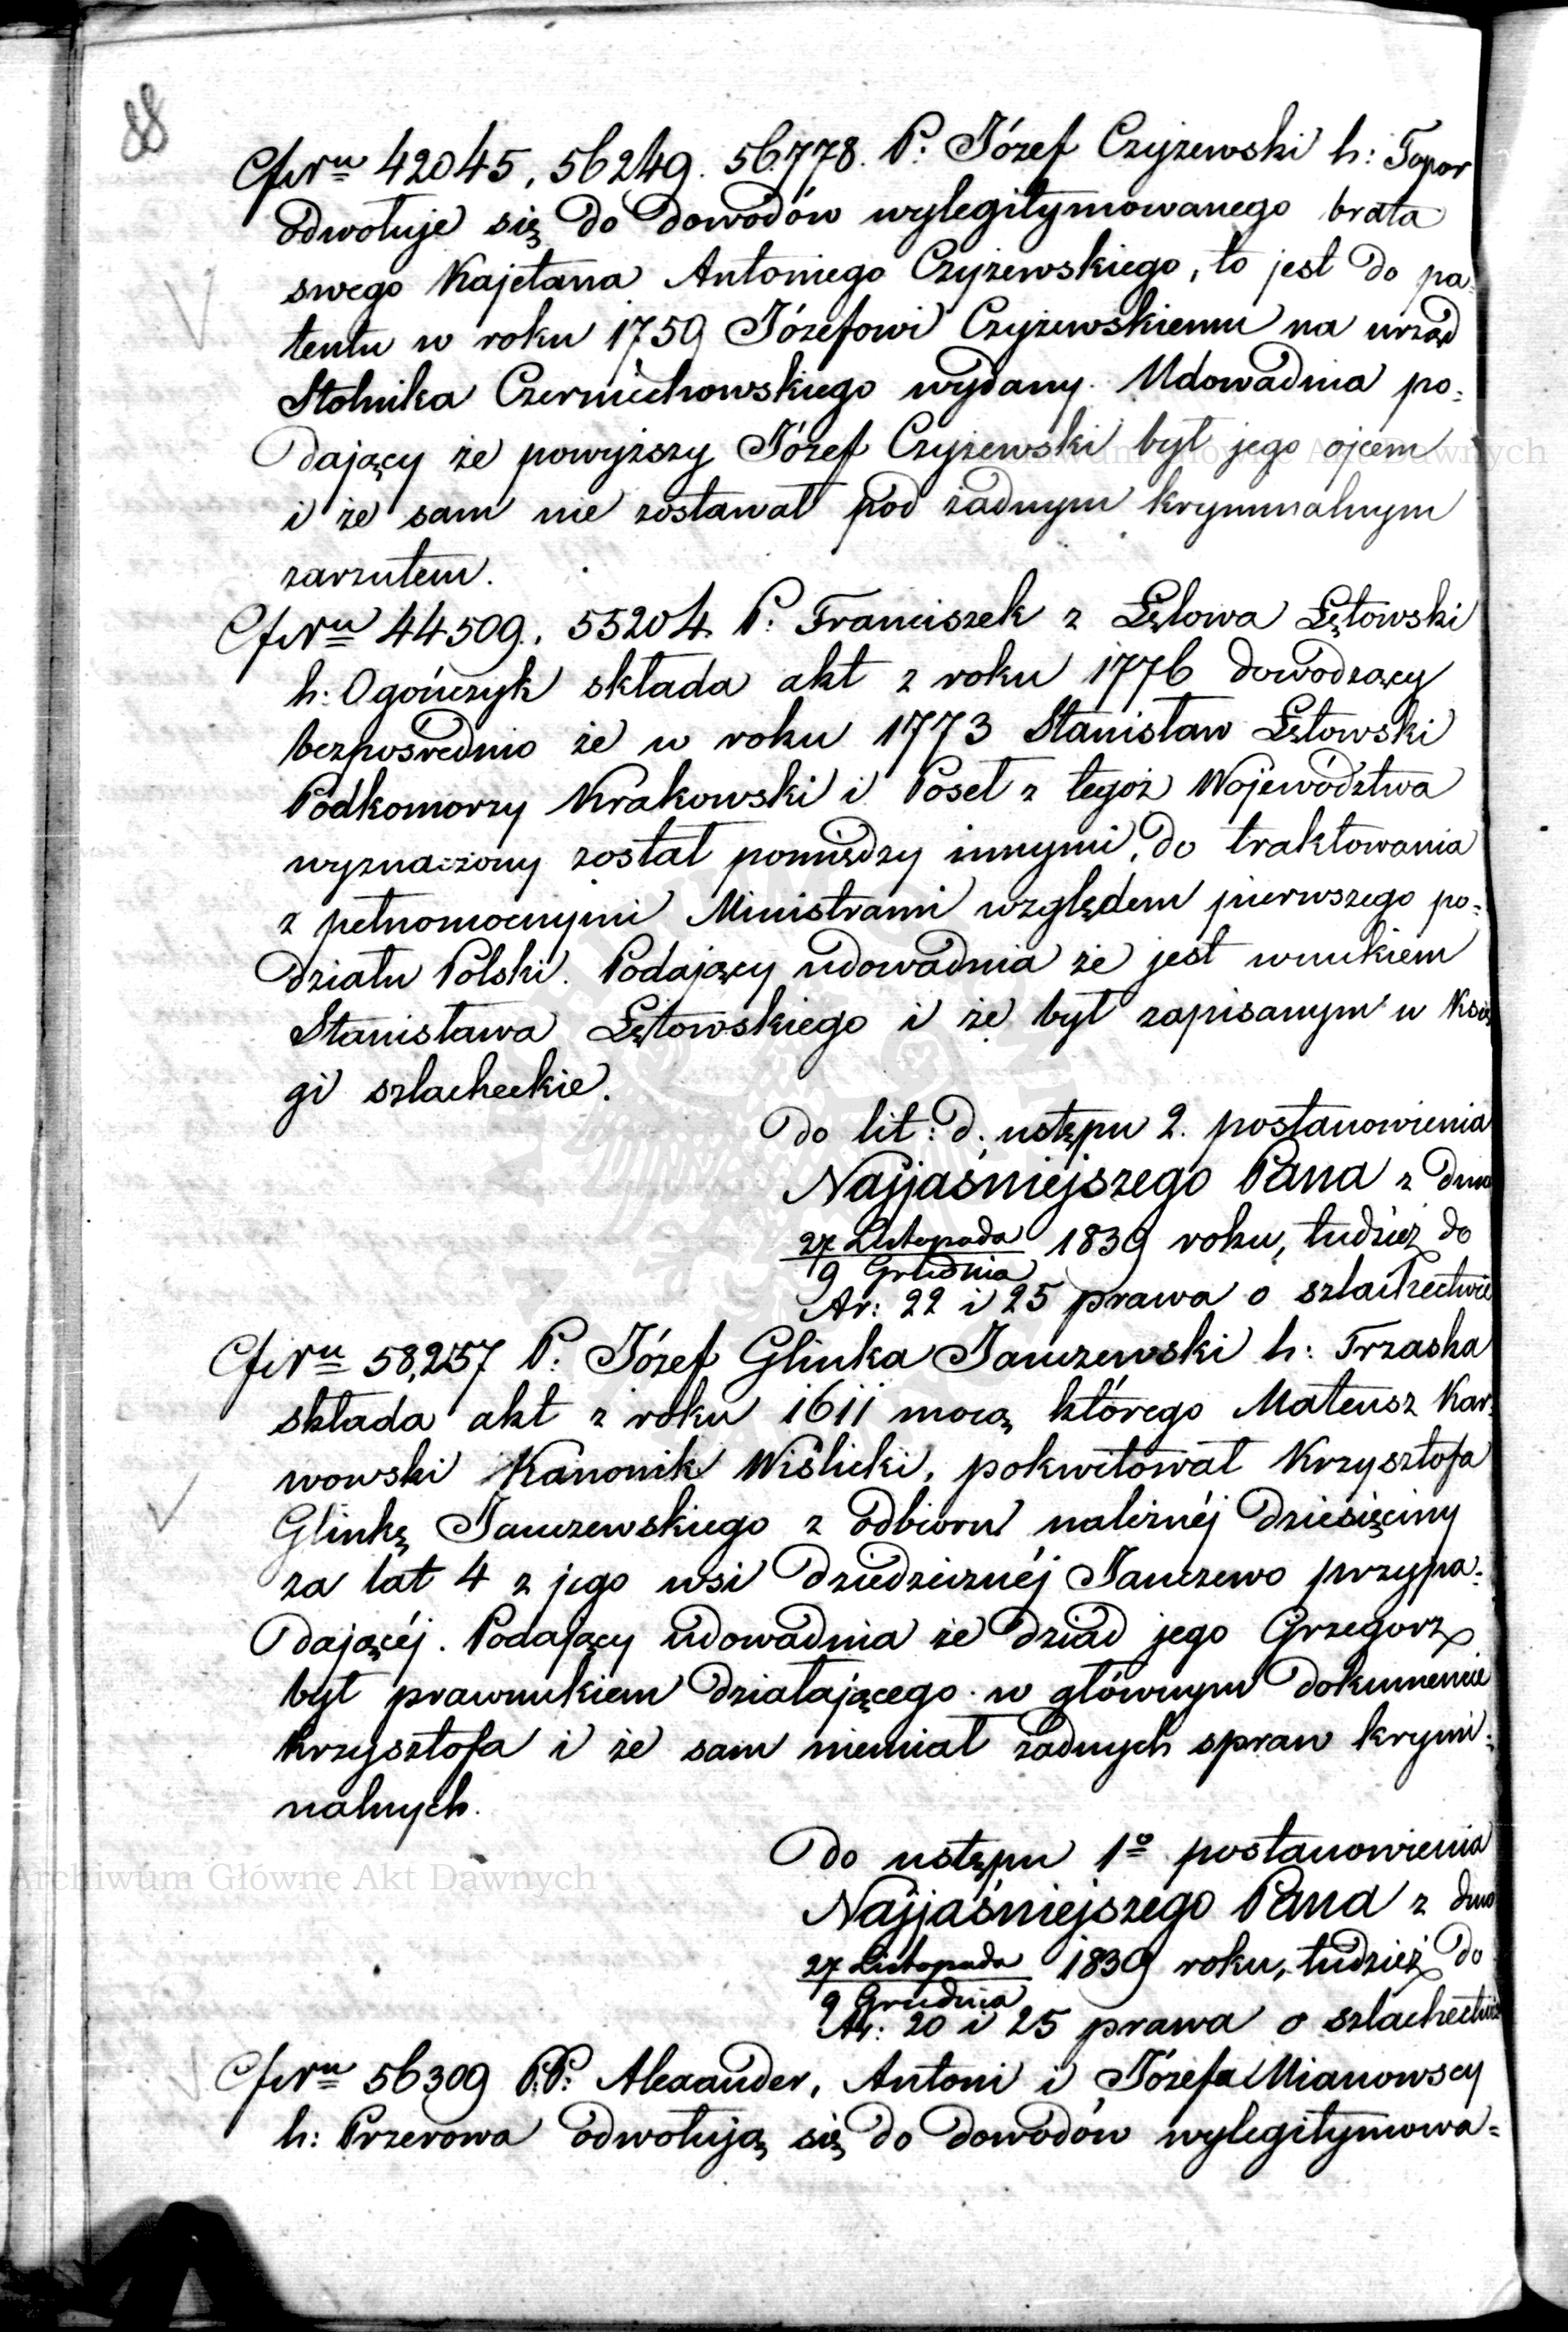 88
Cf Nru 42045, 56249. 56778. P: Józef Czyżewski h: Topor
odwołuje się do dowodów wylegitymowanego brata
swego Kajetana Antoniego Czyżewskiego, to jest do pa-
tentu w roku 1759 Józefowi Czyżewskiemu na urząd
Stolnika Czerniechowskiego wydany. Udowadnia po-
dający że powyższy Józef Czyżewski był jego ojcem
i że sam nie zostawał pod żadnym kryminalnym
zarzutem.
Cf Nru 44509., 55204 P: Franciszek z Łętowa Łętowski
h: Ogończyk składa akt z roku 1776 dowodzący
bezpośrednio że w roku 1773 Stanisław Łętowski
Podkomorzy Krakowski i Poseł z tegoż Województwa
wyznaczony został pomiędzy innymi, do traktowania
z pełnomocnymi Ministrami względem pierwszego po-
działu Polski. Podający udowadnia że jest wnukiem
Stanisława Łętowskiego i że był zapisanym w Księ
gi szlacheckie.
Do lit: d. ustępu 2. postanowienia
Najjaśniejszego Pana z dnia
27 Listopada / 9 Grudnia 1839 roku, tudzież do
Ar: 22 i 25 prawa o szlachectwie
Cf Nru 58,257 P: Józef Glinka Janczewski h: Trzaska
składa akt z roku 1611 mocą którego Mateusz Kar-
wowski Kanonik Wiślicki, pokwitował Krzysztofa
Glinkę Janczewskiego z odbioru należnéj dziesięciny
za lat 4 z jego wsi dziedzicznéj Janczewo przypa-
dającéj. Podający udowadnia że dziad jego Grzegorz
był prawnukiem działającego w głównym dokumencie
Krzysztofa i że sam niemiał żadnych spraw krymi-
nalnych.
Do ustępu 1º postanowienia
Najjaśniejszego Pana z dnia
27 Listopada / 9 Grudnia 1839 roku, tudzież do
Ar: 20 i 25 prawa o szlachectwie
Cf Nru 56309 P.P: Alexander, Antoni i Józefa Mianowscy
h: Przerowa odwołują się do dowodów wylegitymowa-
Archiwum Główne Akt Dawnych